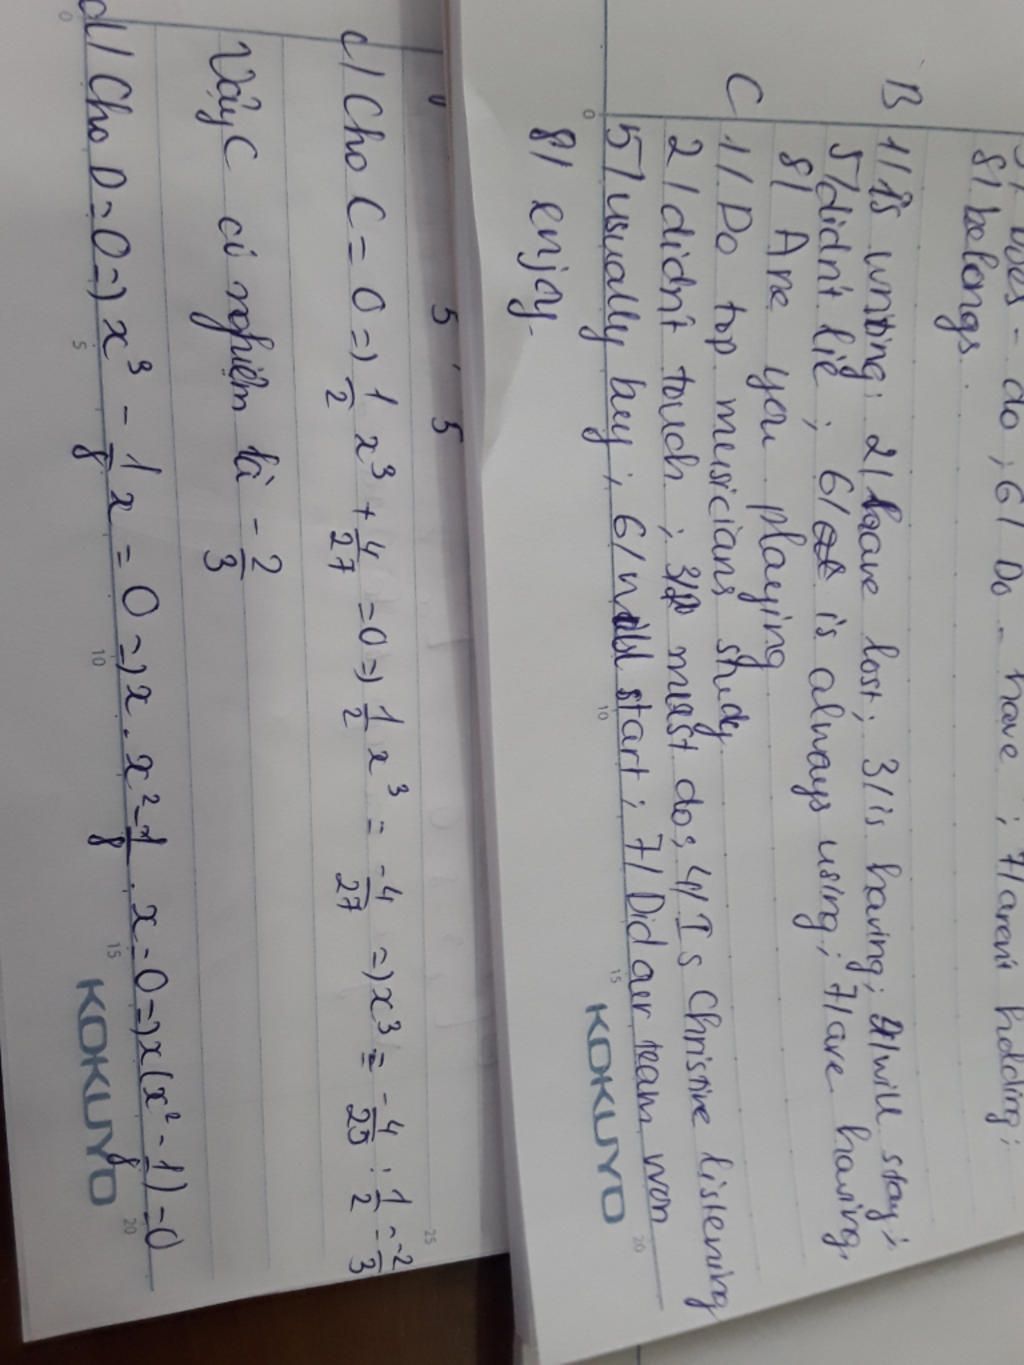 do ; 6/ Do - have ; 7/ aren't holding ;
8/ belongs.
B 1/ is writing ; 2/ have lost ; 3/ is having ; 4/ will stay ;
5/ didn't lie ; 6/ is always using ; 7/ are having.
8/ Are you playing
C 1/ Do top musicians study
2/ didn't touch ; 3/ must do ; 4/ Is Christine listening
5/ usually buy ; 6/ start ; 7/ Did our team won
8/ enjoy.
KOKUYO
5 , 5
c/ Cho C = 0 => 1/2 x³ + 4/27 = 0 => 1/2 x³ = -4/27 => x³ = -4/25 : 1/2 = -2/3
Vậy C có nghiệm là - 2/3
d/ Cho D = 0 => x³ - 1/8 x = 0 => x . x² - 1/8 . x = 0 => x (x² - 1/8) = 0
KOKUYO